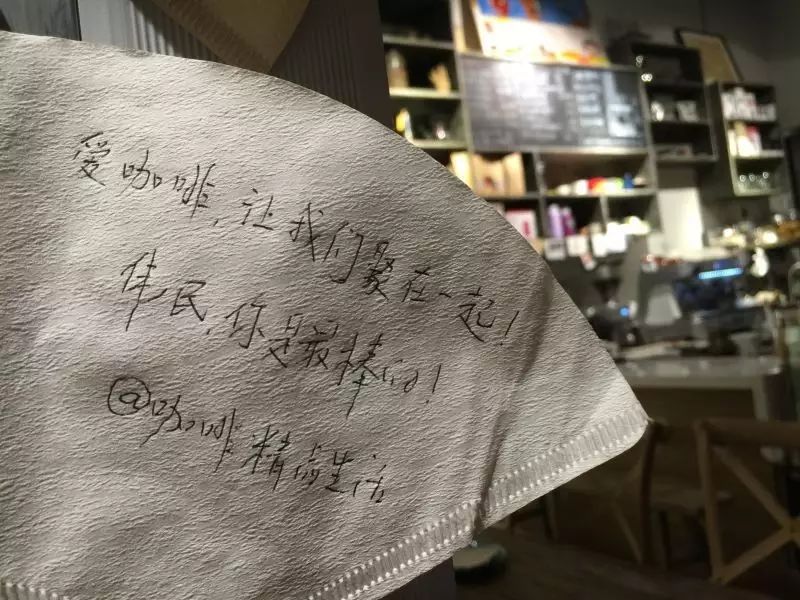 爱咖啡，让我们聚在一起！
伟民，你是最棒的！
@咖啡精品生活